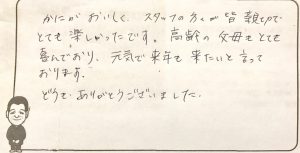 かにが おいしく、スタッフの方々が 皆 親切で
とても 楽しかったです。高齢の 父母も とても
喜んでおり、元気で 来年も 来たいと 言って
おります。
どうも ありがとうございました。